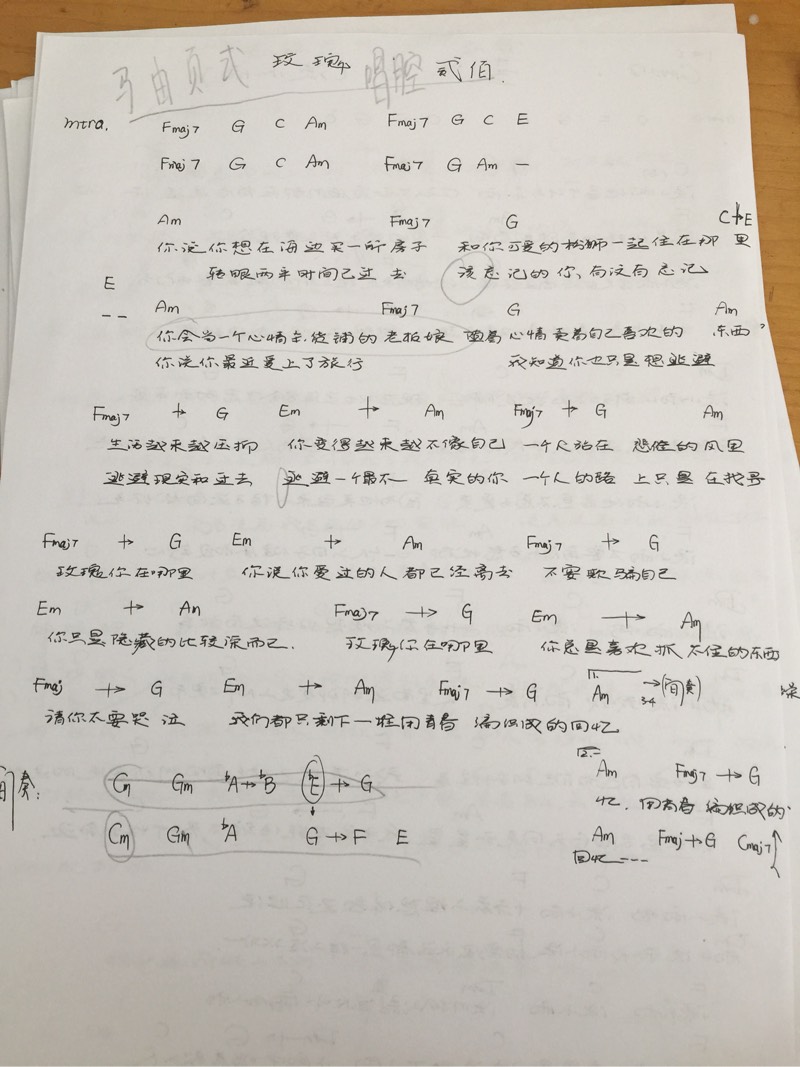 玫瑰 贰佰
马由页式 唱腔
intra. Fmaj7 G C Am Fmaj7 G C E
Fmaj7 G C Am Fmaj7 G Am —
Am Fmaj7 G C→E
你说你想在海边买一所房子 和你可爱的松狮一起住在那里
转眼两年时间已过去 该忘记的你、有没有忘记
E
-- Am Fmaj7 G Am
你会当一个心情杂货铺的老板娘 随着心情卖着自己喜欢的 东西
你说你最近爱上了旅行 我知道你也只是想逃避
Fmaj7 → G Em → Am Fmaj7 → G Am
生活越来越压抑 你变得越来越不像自己 一个人站在 悲催的风里
逃避现实和过去 逃避一个最不 真实的你 一个人的路 上只是在找寻
Fmaj7 → G Em → Am Fmaj7 → G
玫瑰你在哪里 你说你爱过的人都已经离去 不要欺骗自己
Em → Am Fmaj7 → G Em → Am
你只是隐藏的比较深而已. 玫瑰你在哪里 你总是喜欢抓不住的东西
Fmaj → G Em → Am Fmaj7 → G 1. Am →(间奏)
3-4
请你不要哭泣 我们都只剩下一堆用青春 编织成的回忆
间奏: Cm Gm ♭A→♭B ♭E → G
Cm Gm ♭A G → F E
2.
Am Fmaj7 → G
忆. 用青春编织成的
Am Fmaj → G Cmaj7
回忆---